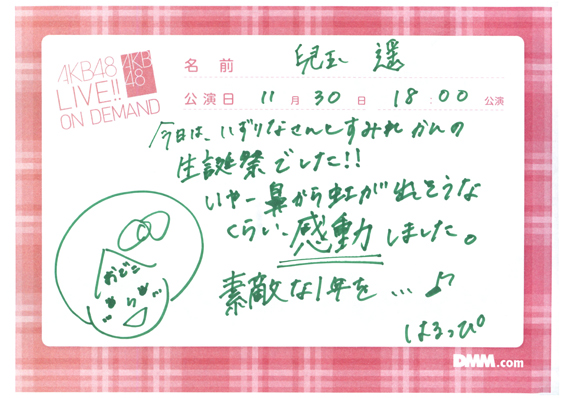 AKB48
LIVE!!
ON DEMAND
AKB
48
名前 兒玉 遥
公演日 11月30日 18:00公演
今日は、いずりなせんとすみれかんの
生誕祭でした!!
いやー鼻から虹が出そうな
くらい、感動しました。
おでこ
素敵な1年を…♪
はるっぴ
DMM.com